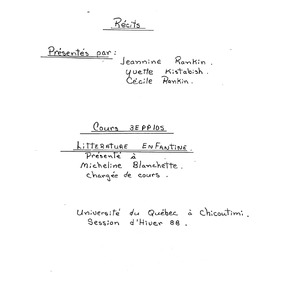 Récits
Présentés par:
Jeannine Rankin.
Yvette Kistabish.
Cécile Rankin.
Cours 3EPP105
LITTERATURE ENFANTINE.
Présenté à
Micheline Blanchette.
chargée de cours.
Université du Québec à Chicoutimi.
Session d'Hiver 88.